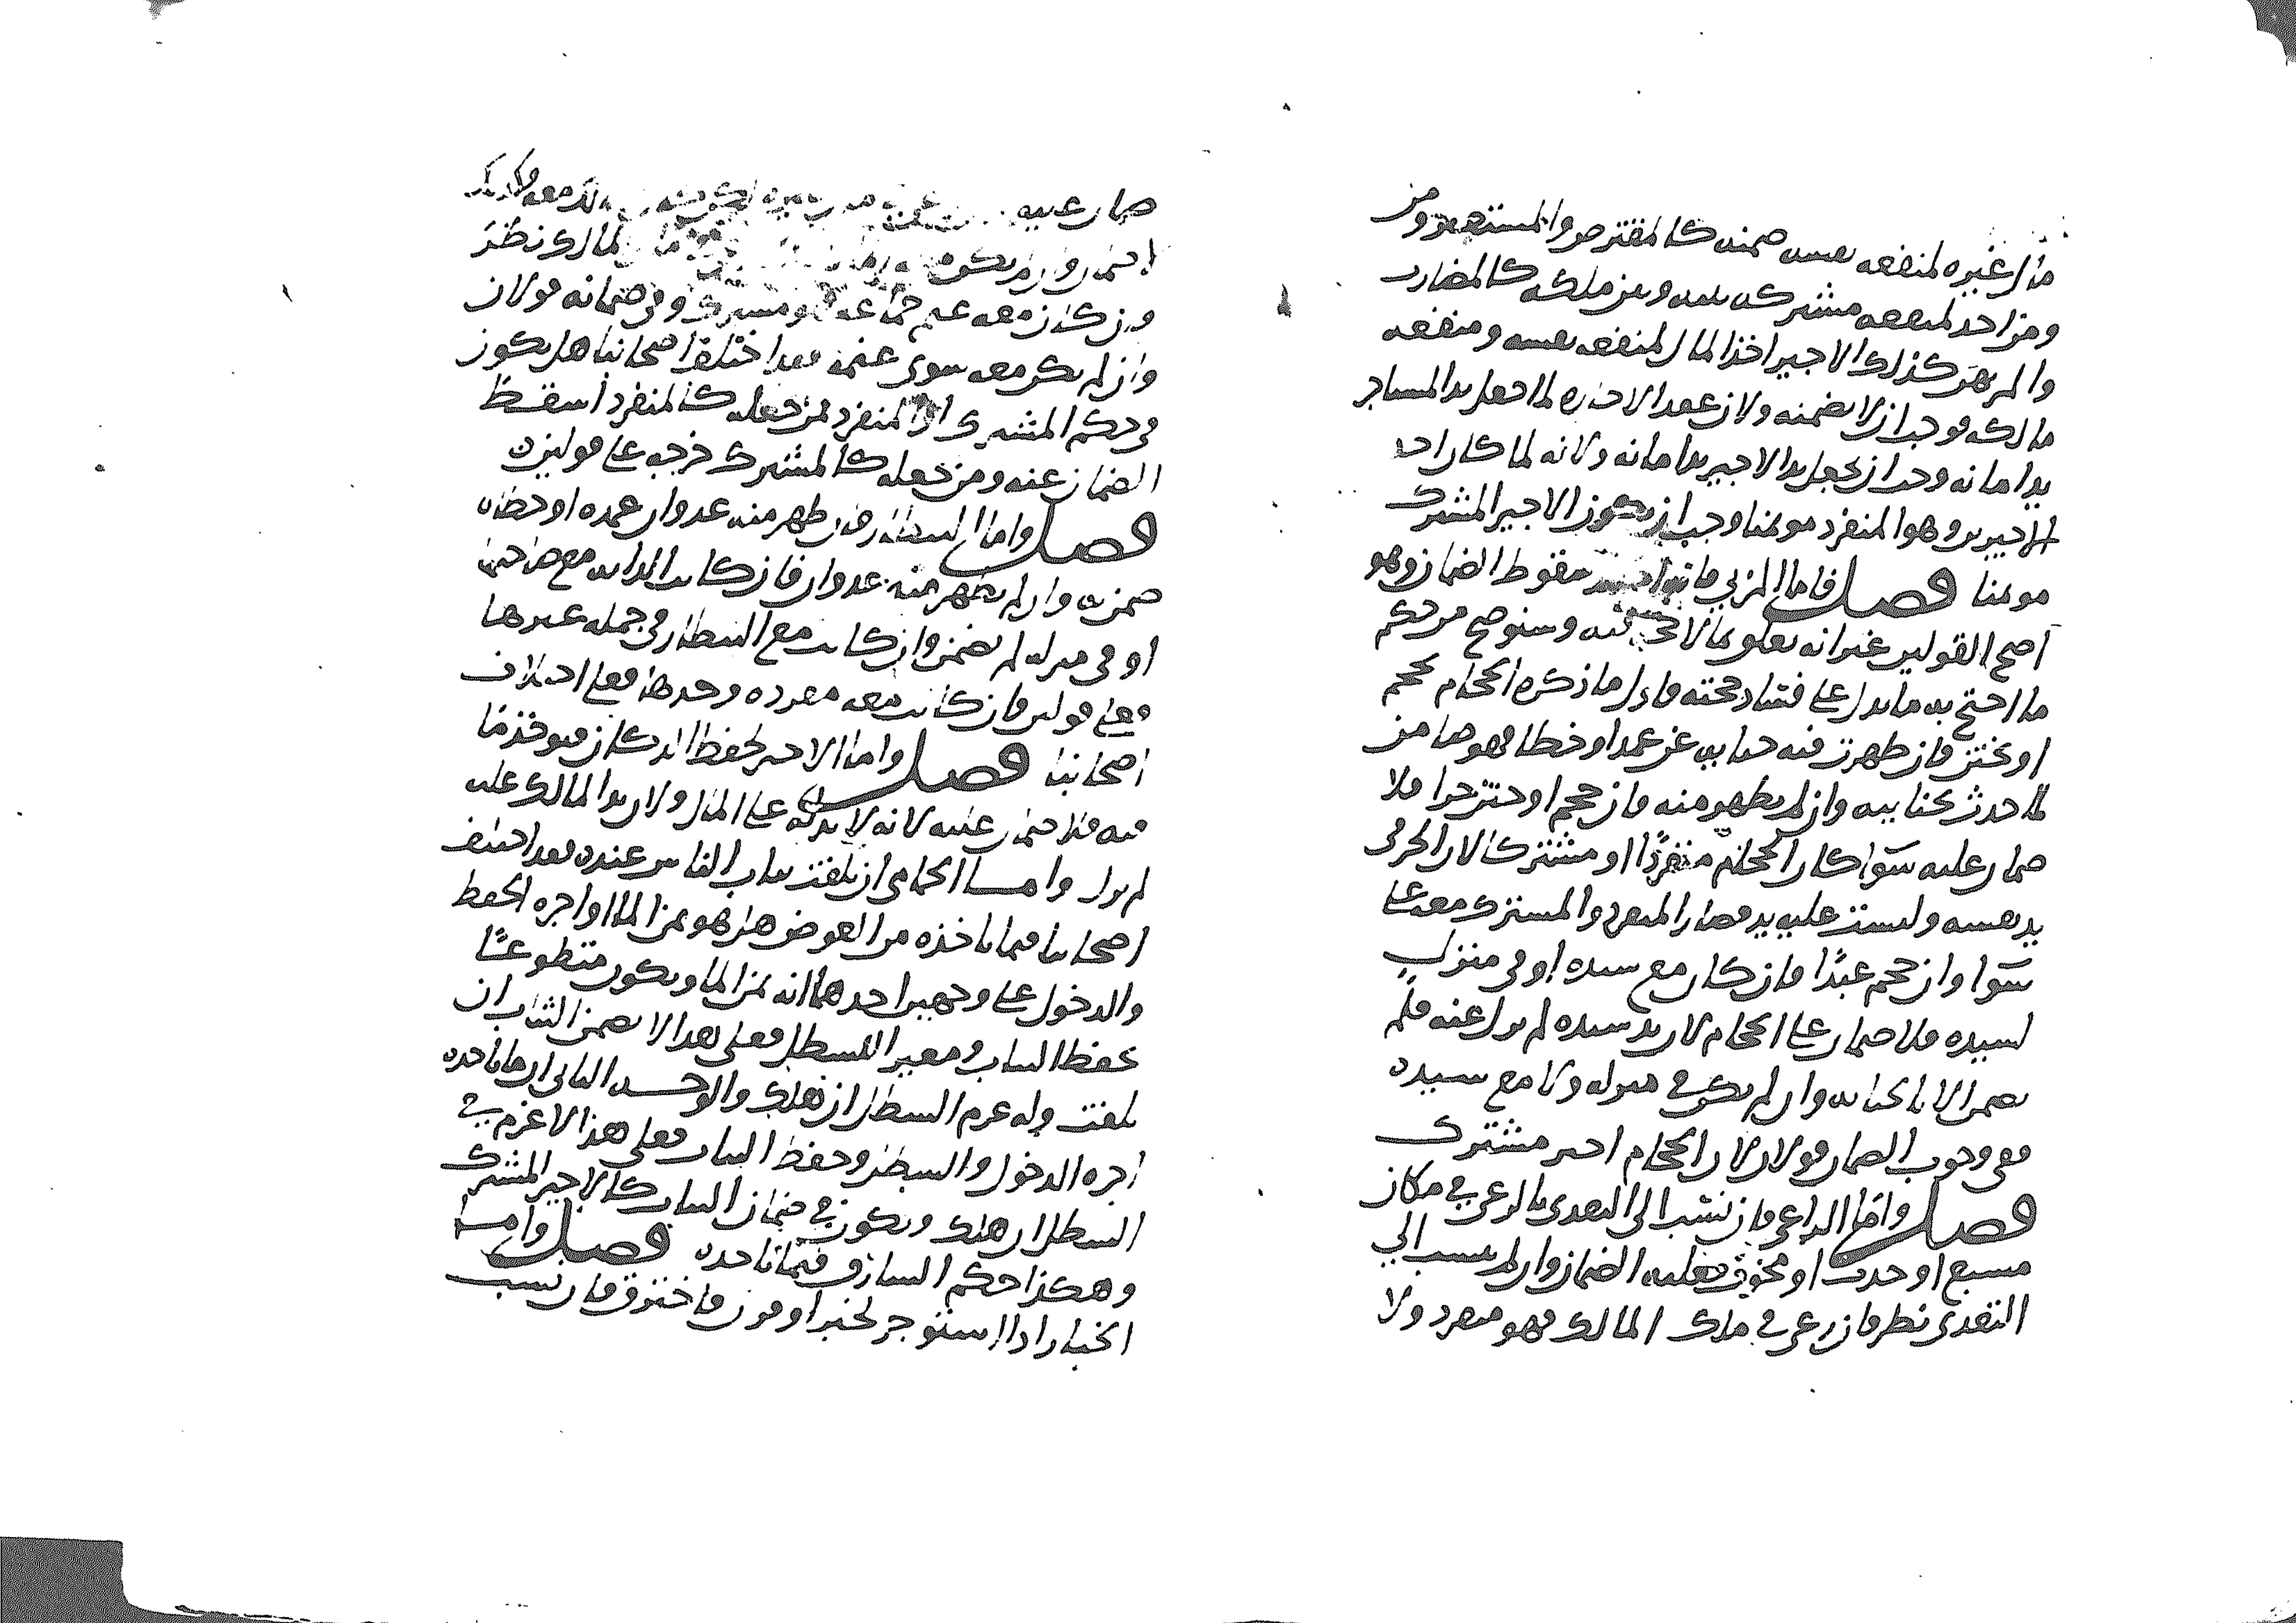 مال غيره لمنفعه نفسه ضمنه كالمقترض والمستعير ومن
ومن اخذ لمنفعه مشتركه بينه وبين ملكه كالمضارب
والمرتهن كذلك الاجير اخذ المال لمنفعه نفسه ومنفعه
مالكه فوجب ان لا يضمنه ولان عقد الاجاره لما جعل يد المستاجر
يد امانه وجب ان يجعل يد الاجير يد امانه ولانه لما كان احد
الاجيرين وهو المنفرد موتمنا وجب ان يكون الاجير المشترك
موتمنا فصل فاما المزني فانه سقوط الضمان وهو
اصح القولين غير انه تعلق بما لا حجه فيه وسنوضح من حكم
ما احتج به ما يدل على فساد حجته فاول ما ذكره الحجام يحجم
او يختن فان ظهرت منه جنايه عن عمد او خطا فهو ضامن
لما حدث بجنايته وان لم يظهر منه فان حجم او ختن حرا فلا
ضمان عليه سوا كان الحجام منفردا او مشتركا لان الحر في
يد نفسه وليست عليه يد فصار المنفرد والمشترك معه على
سوا وان حجم عبدا فان كان مع سيده او في منزل
لسيده فلا ضمان على الحجام لان يد سيده لم تزل عنه فلم
يضمن الا بالجنايه وان لم يكن في منزله ولا مع سيده
ففي وجوب الضمان قولان لان الحجام اجير مشترك
فصل واما الراعي فان نسب الى التعدي بالرعي في مكان
مسبع او جدب او مخوف فعليه الضمان وان لم ينسب الي
التعدي نظر فان رعى في ملك المالك فهو منفرد ولا
ضمان عليه
المالك نظر
فان كان معه غنم جماعه فهو مشترك وفي ضمانه قولان
وان لم يكن معه سوى غنمه فقد اختلف اصحابنا هل يكون
في حكم المشترك او المنفرد فمن جعله كالمنفرد اسقط
الضمان عنه ومن جعله كالمشترك خرجه على قولين
فصل واما البيطار فان ظهر منه عدوان عمده او خطاه
ضمن وان لم يظهر منه عدوان فان كانت الدابه مع صاحبها
او في منزله لم يضمن وان كانت مع البيطار في جمله غيرها
فعلى قولين وان كانت معه مفرده وحدها فعلى اختلاف
اصحابنا فصل واما الاجير لحفظ الدكان فيوخذ ما
فيه فلا ضمان عليه لانه لا يد له على المال ولان يد المالك عليه
لم تزل واما الحمامي ان تلفت ثياب الناس عنده فقد اختلف
اصحابنا فيما ياخذه من العوض هل هو ثمن الماء او اجره الحفظ
والدخول على وجهين احدهما انه ثمن الماء ويكون متطوعا
بحفظ الثياب ومعير السطل فعلى هذا لا يضمن الثياب ان
تلفت وله غرم السطل ان هلك والوجه الثاني ان ما ياخذه
اجره الدخول والسطل وحفظ الثياب فعلى هذا لا غرم في
السطل ان هلك ويكون في ضمان الثياب كالاجير المشترك
وهكذا حكم فيما ياخذه فصل واما
الخباز اذا استوجر لخبز او فرن فاحترق فان نسب